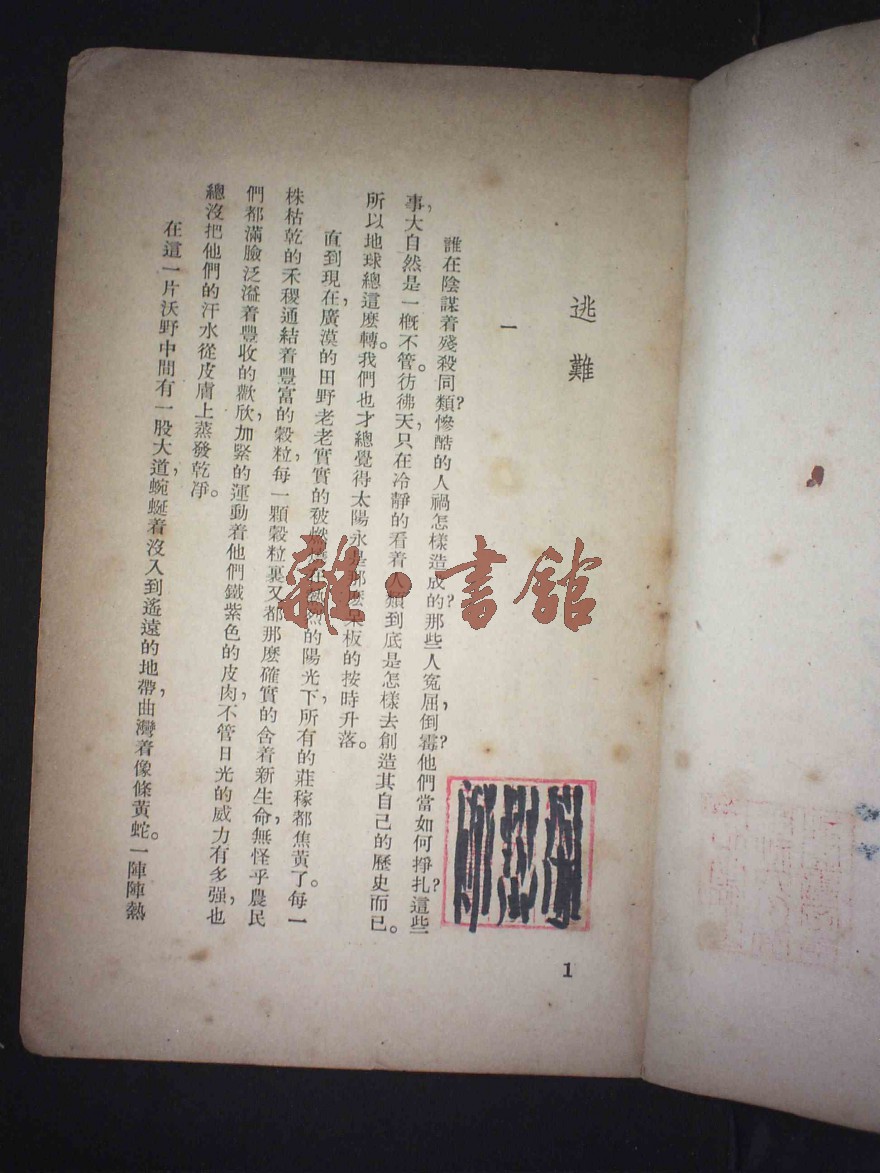 逃難
一
誰在陰謀着殘殺同類?慘酷的人禍怎樣造成的?那些人寃屈,倒霉?他們當如何掙扎?這些
事,大自然是一概不管。彷彿天,只在冷靜的看着人類到底是怎樣去創造其自己的歷史而已。
所以地球總這麼轉。我們也才總覺得太陽永是那麼呆板的按時升落。
直到現在,廣漠的田野老老實實的被燃燒在熱烈的陽光下,所有的莊稼都焦黃了。每一
株枯乾的禾稷通結着豐富的穀粒,每一顆穀粒裏又都那麼確實的含着新生命,無怪乎農民
們都滿臉泛溢着豐收的歡欣,加緊的運動着他們鐵紫色的皮肉,不管日光的威力有多强,也
總沒把他們的汗水從皮膚上蒸發乾淨。
在這一片沃野中間有一股大道,蜿蜒着沒入到遙遠的地帶,曲灣着像條黃蛇。一陣陣熱
1
雜·書館